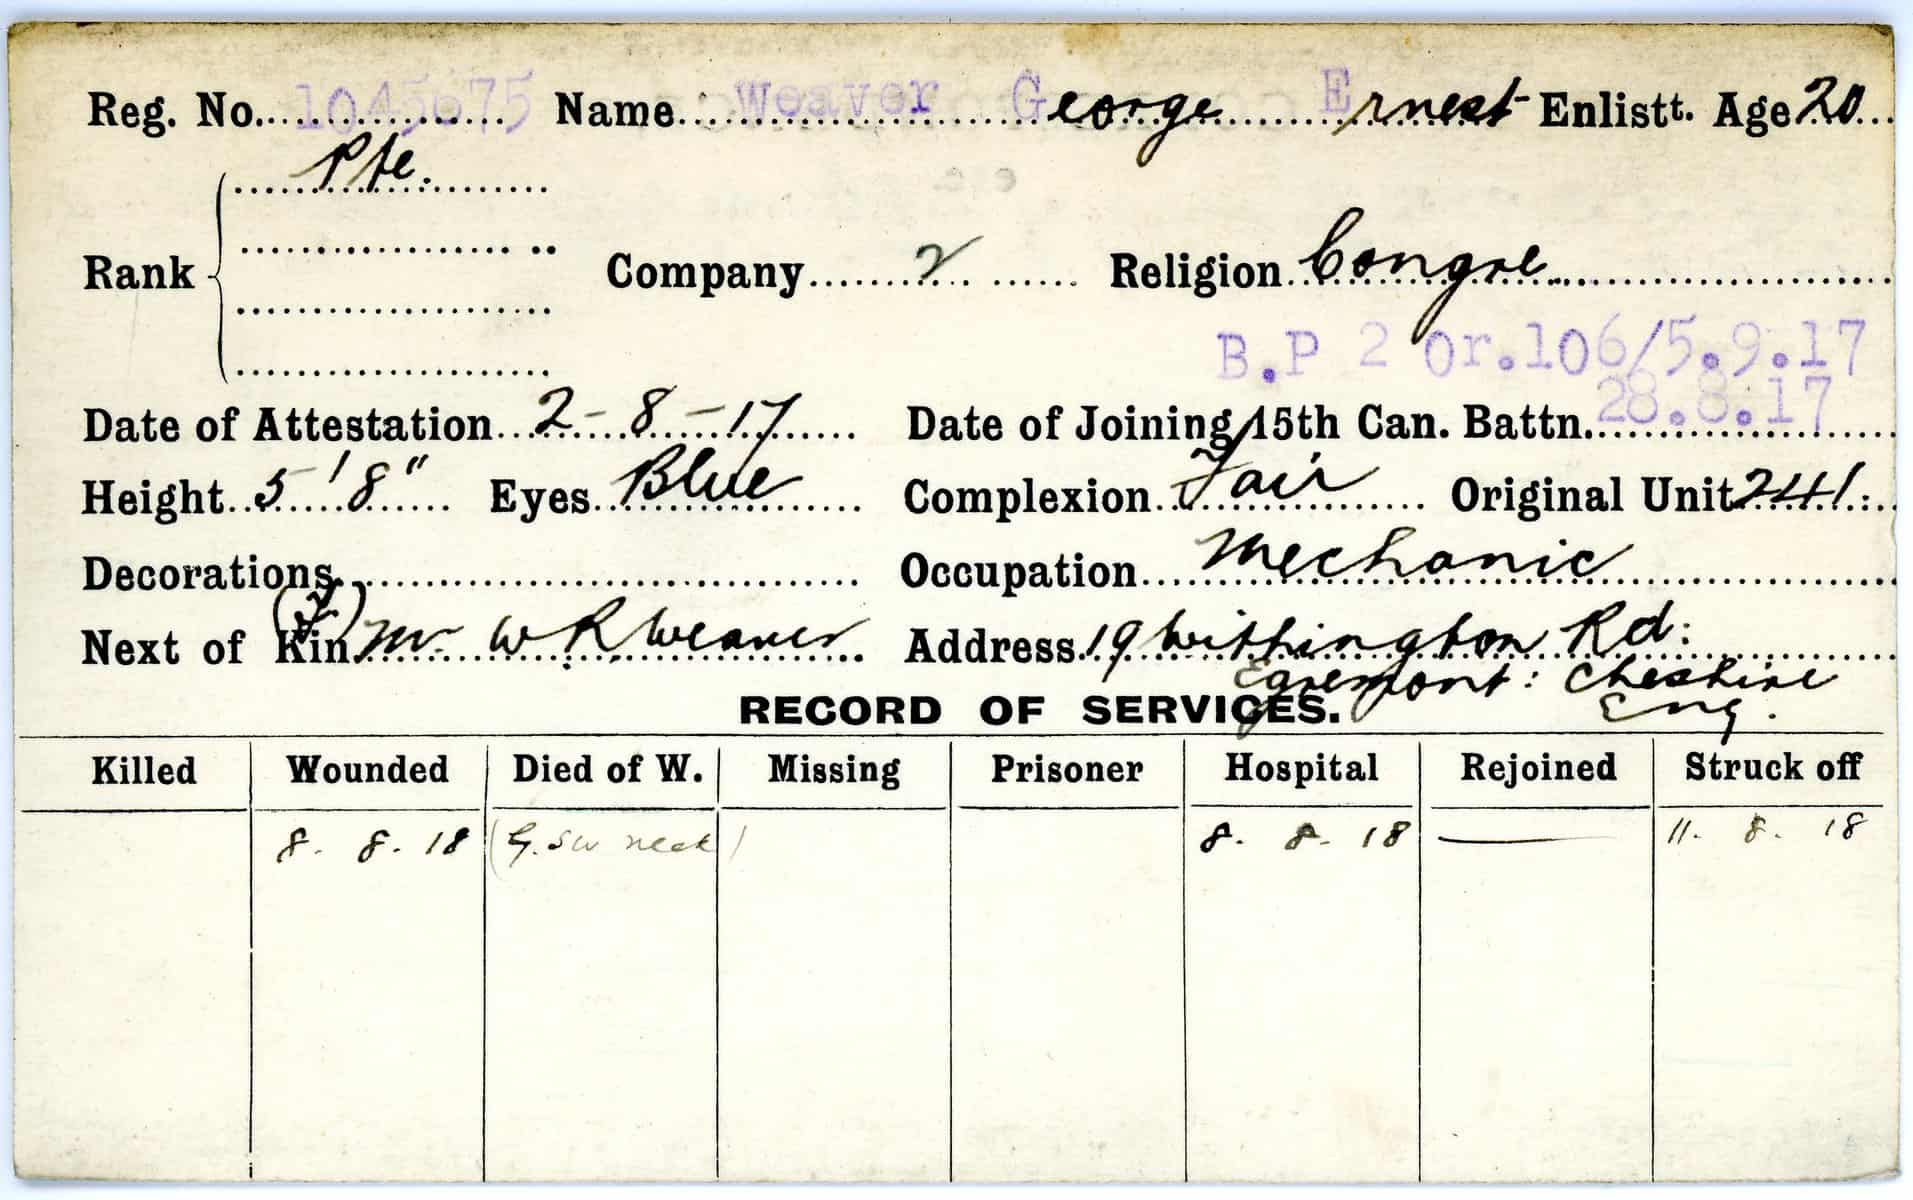 Reg. No. 1045675 Name Weaver George Ernest Enlistt. Age 20
Pte.
Rank Company 2 Religion Congre
B.P 2 Or.106/5.9.17
Date of Attestation 2-8-17 Date of Joining 15th Can. Battn. 28.8.17
Height 5'8" Eyes Blue Complexion Fair Original Unit 241
Decorations Occupation Mechanic
Next of Kin Mr W R Weaver Address 19 Withington Rd:
Egremont: Cheshire
Eng.
RECORD OF SERVICES.
Killed Wounded Died of W. Missing Prisoner Hospital Rejoined Struck off
8. 8. 18 (G.SW neck) 8. 8. 18 — 11. 8. 18